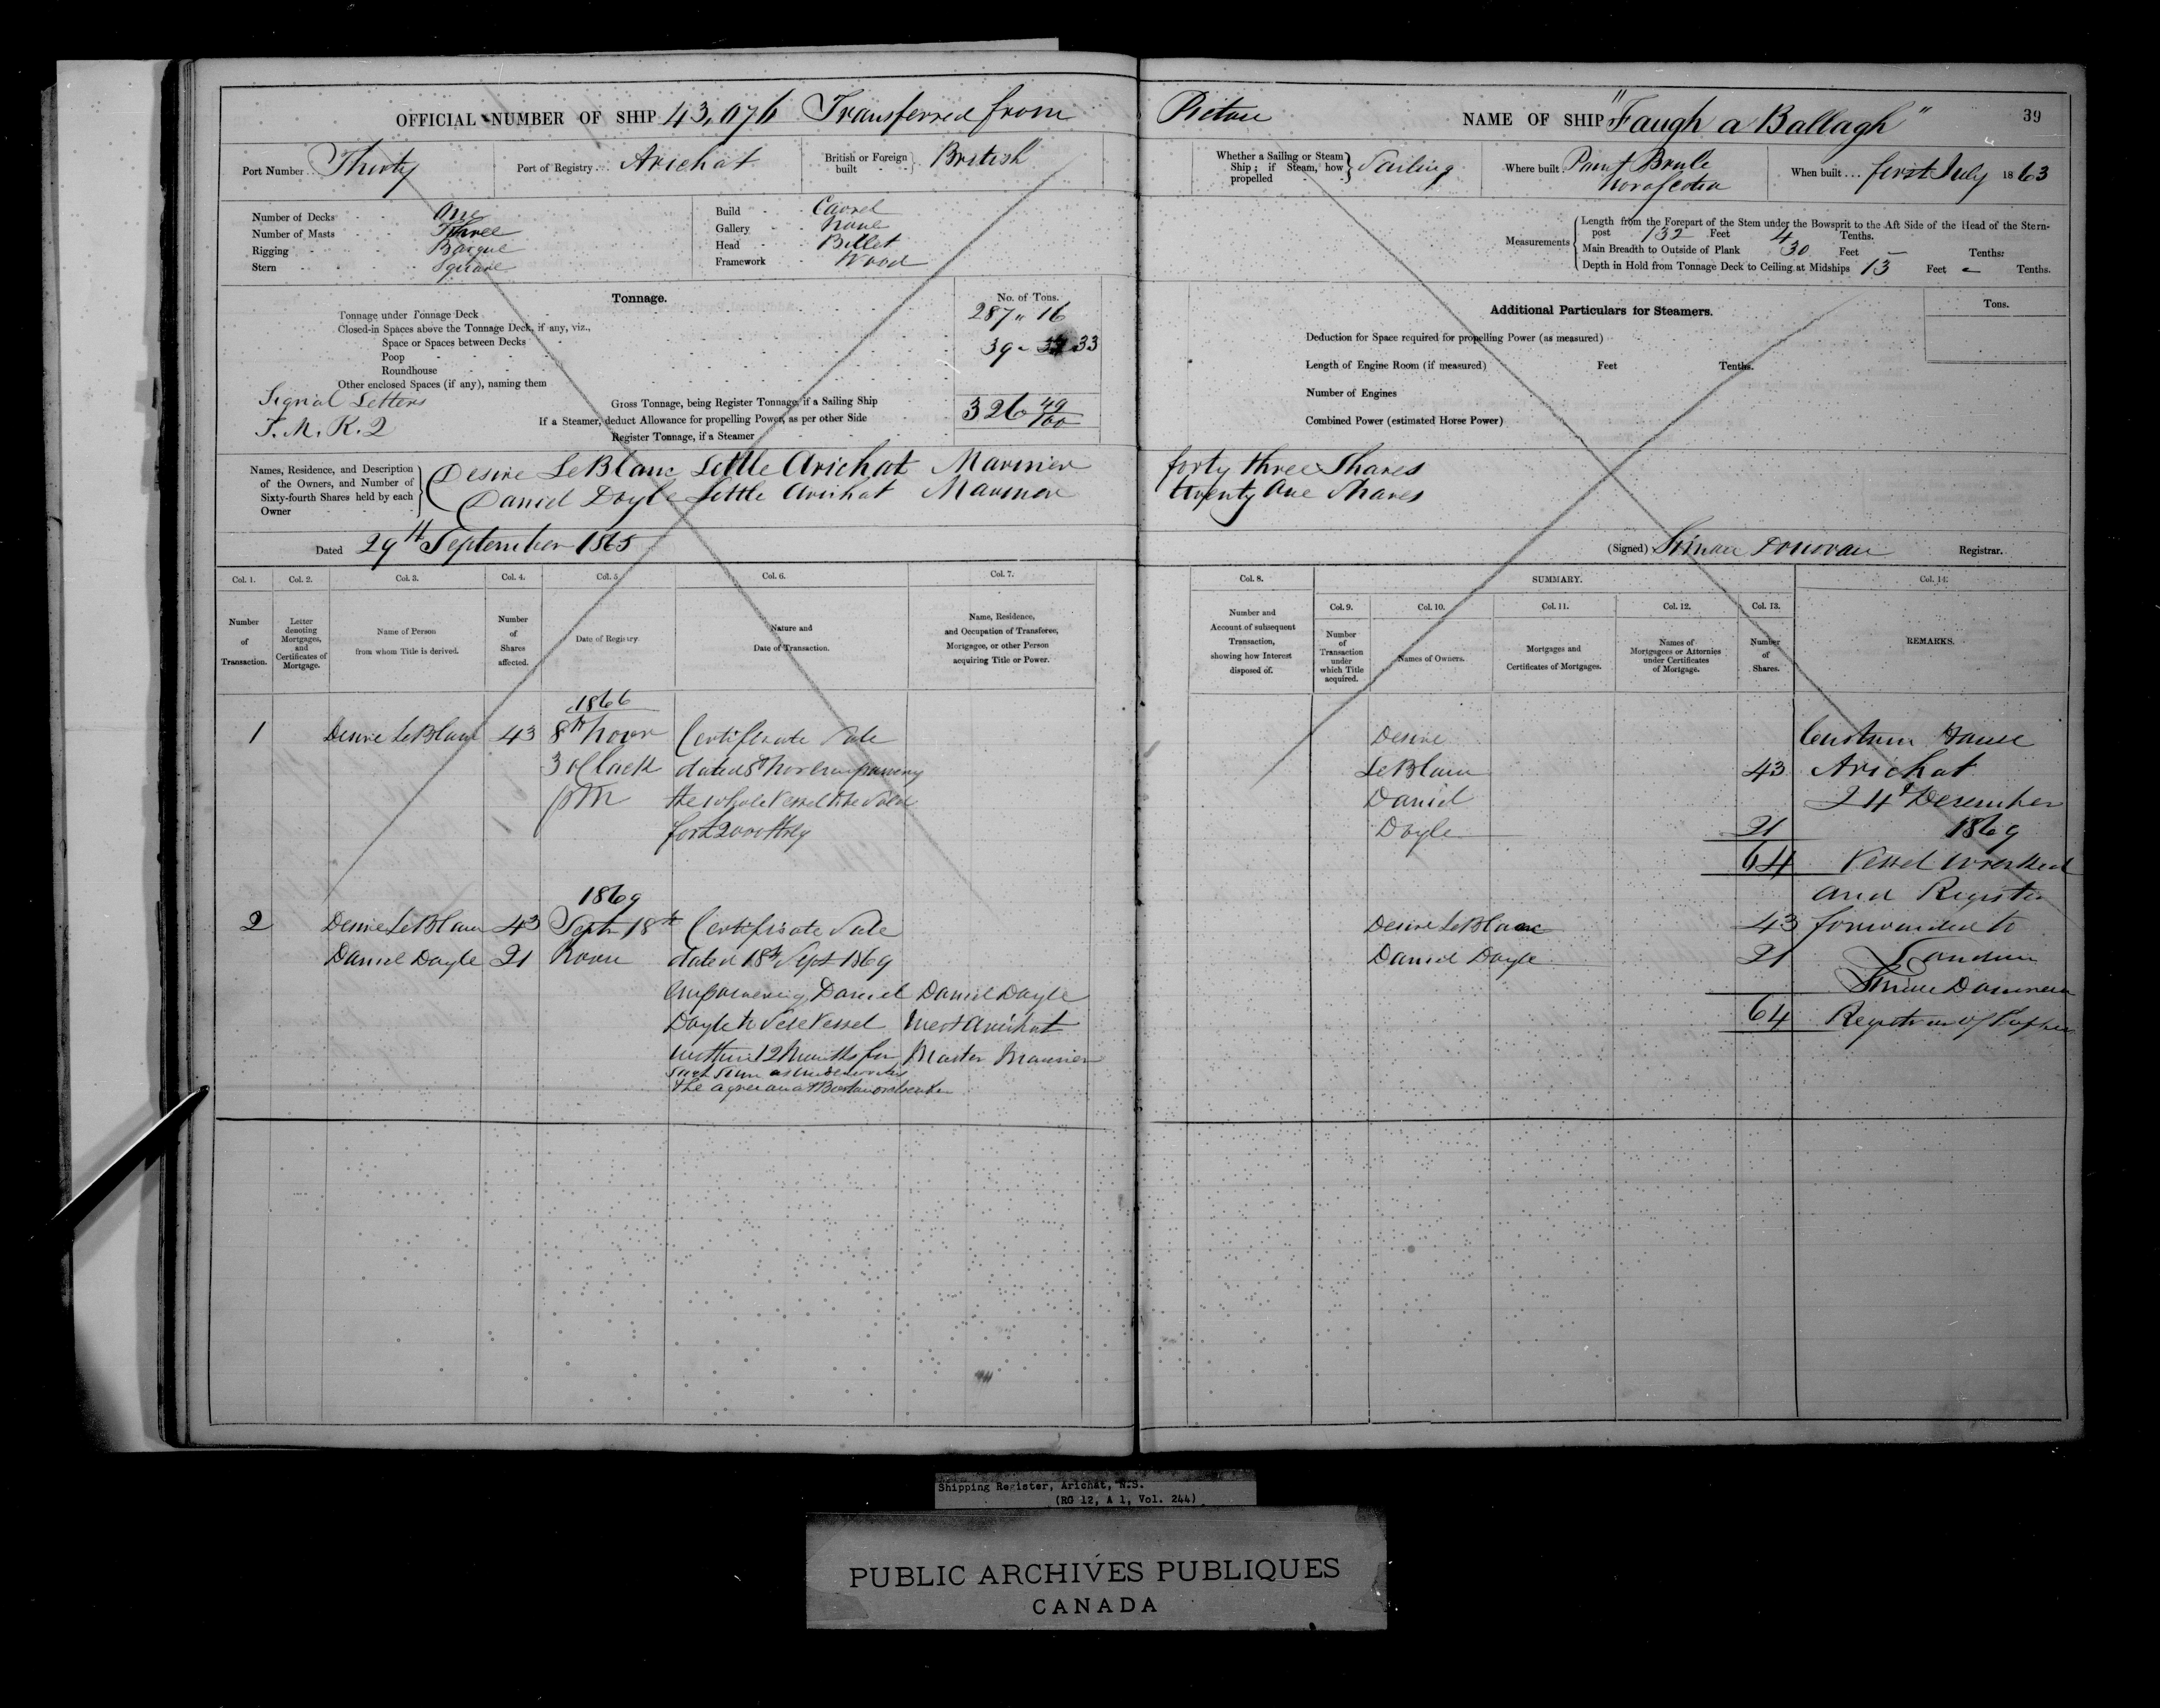 OFFICIAL NUMBER OF SHIP 43,076 Transferred from Pictou NAME OF SHIP "Faugh a Ballagh" 39
Port Number Thirty Port of Registry Arichat British or Foreign built British
Whether a Sailing or Steam Ship; if Steam, how propelled Sailing Where built Point Brule Nova Scotia When built first July 1863
Number of Decks One
Number of Masts Three
Rigging Barque
Stern Square
Build Carvel
Gallery None
Head Billet
Framework Wood
Measurements
Length from the Forepart of the Stem under the Bowsprit to the Aft Side of the Head of the Stern-
post 132 Feet 4 Tenths.
Main Breadth to Outside of Plank 30 Feet 5 Tenths:
Depth in Hold from Tonnage Deck to Ceiling at Midships 13 Feet - Tenths.
Tonnage. No. of Tons.
Tonnage under Tonnage Deck 287 " 16
Closed-in Spaces above the Tonnage Deck, if any, viz.,
Space or Spaces between Decks
Poop 39 - 33
Roundhouse
Other enclosed Spaces (if any), naming them
Signal Letters
T. M. K. Q
Gross Tonnage, being Register Tonnage, if a Sailing Ship 326 49/100
If a Steamer, deduct Allowance for propelling Power, as per other Side
Register Tonnage, if a Steamer
Additional Particulars for Steamers. Tons.
Deduction for Space required for propelling Power (as measured)
Length of Engine Room (if measured) Feet Tenths.
Number of Engines
Combined Power (estimated Horse Power)
Names, Residence, and Description of the Owners, and Number of Sixty-fourth Shares held by each Owner
Desire LeBlanc Little Arichat Mariner forty three Shares
Daniel Doyle Little Arichat Mariner twenty one Shares
Dated 29th September 1865 (Signed) Donovan Registrar.
Col. 1. Col. 2. Col. 3. Col. 4. Col. 5. Col. 6. Col. 7. Col. 8. SUMMARY. Col. 14.
Col. 9. Col. 10. Col. 11. Col. 12. Col. 13.
Number of Transaction.
Letter denoting Mortgages, and Certificates of Mortgage.
Name of Person from whom Title is derived.
Number of Shares affected.
Date of Registry.
Nature and Date of Transaction.
Name, Residence, and Occupation of Transferee, Mortgagee, or other Person acquiring Title or Power.
Number and Account of subsequent Transaction, showing how Interest disposed of.
Number of Transaction under which Title acquired.
Names of Owners.
Mortgages and Certificates of Mortgages.
Names of Mortgagees or Attornies under Certificates of Mortgage.
Number of Shares.
REMARKS.
1866
1 Desire LeBlanc 43 8th Novr Certificate Sale
3 oClock dated 5th Nov Empowering
PM the whole Vessel to be Sold
for £2000 Stg
1869
2 Desire LeBlanc 43 Septr 18th Certificate Sale
Daniel Doyle 21 Noon dated 18th Sept 1869
Empowering Daniel Daniel Doyle
Doyle to Sell Vessel West Arichat
within 12 Months for Master Mariner
Such Sum as
the agree and
Desire
LeBlanc 43
Daniel
Doyle 21
64
Desire LeBlanc 43
Daniel Doyle 21
64
Custom House
Arichat
24th December
1869
Vessel Wrecked
and Register
forwarded to
London
Registrar of Shipping
Shipping Register, Arichat, N.S.
(RG 12, A 1, Vol. 244)
PUBLIC ARCHIVES PUBLIQUES
CANADA